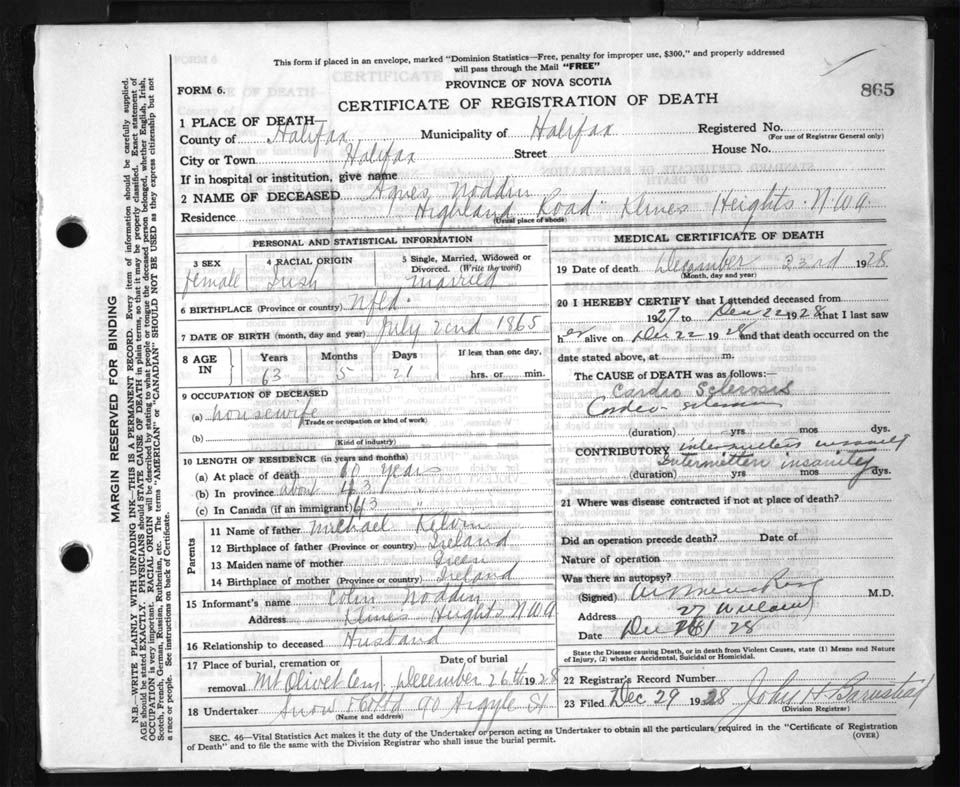 This form if placed in an envelope, marked "Dominion Statistics—Free, penalty for improper use, $300," and properly addressed
will pass through the Mail "FREE"
FORM 6.
PROVINCE OF NOVA SCOTIA
865
CERTIFICATE OF REGISTRATION OF DEATH
1 PLACE OF DEATH—
County of Halifax Municipality of Halifax Registered No.
(For use of Registrar General only)
City or Town Halifax Street House No.
If in hospital or institution, give name
2 NAME OF DECEASED Agnes Noddin
Residence Highland Road Klines Heights N.W.A.
(Usual place of abode)
PERSONAL AND STATISTICAL INFORMATION
3 SEX 4 RACIAL ORIGIN 5 Single, Married, Widowed or
Divorced. (Write the word)
female Irish married
6 BIRTHPLACE (Province or country) Nfld.
7 DATE OF BIRTH (month, day and year) July 22nd 1865
8 AGE IN Years Months Days If less than one day,
63 5 21 hrs. or min.
9 OCCUPATION OF DECEASED
(a) housewife
(Trade or occupation or kind of work)
(b)
(Kind of industry)
10 LENGTH OF RESIDENCE (in years and months)
(a) At place of death 60 years
(b) In province about 63
(c) In Canada (if an immigrant) 63
Parents
11 Name of father Michael
12 Birthplace of father (Province or country) Ireland
13 Maiden name of mother Green
14 Birthplace of mother (Province or country) Ireland
15 Informant's name Colin Noddin
Address Klines Heights N.W.A
16 Relationship to deceased Husband
17 Place of burial, cremation or Date of burial
removal Mt Olivet Cem. December 26th 1928
18 Undertaker Snow & Co Ltd 90 Argyle St
(Name and address)
MEDICAL CERTIFICATE OF DEATH
19 Date of death December 23rd 1928
(Month, day and year)
20 I HEREBY CERTIFY that I attended deceased from
1927 to Dec 22 1928 that I last saw
her alive on Dec 22 1928 and that death occurred on the
date stated above, at m.
The CAUSE of DEATH was as follows:—
Cardio Sclerosis
(duration) yrs mos dys.
CONTRIBUTORY intermitten insanity
Intermitten insanity
(duration) yrs mos dys.
21 Where was disease contracted if not at place of death?
Did an operation precede death? Date of
Nature of operation
Was there an autopsy?
(Signed) M.D.
Address 27
Date Dec 28
State the Disease causing Death, or in death from Violent Causes, state (1) Means and Nature
of Injury, (2) whether Accidental, Suicidal or Homicidal.
22 Registrar's Record Number
23 Filed Dec 29 1928 John H Barnstead
(Division Registrar)
SEC. 46—Vital Statistics Act makes it the duty of the Undertaker or person acting as Undertaker to obtain all the particulars required in the "Certificate of Registration
of Death" and to file the same with the Division Registrar who shall issue the burial permit. (OVER)
MARGIN RESERVED FOR BINDING
N.B.—WRITE PLAINLY WITH UNFADING INK—THIS IS A PERMANENT RECORD. Every item of information should be carefully supplied.
AGE should be stated EXACTLY. PHYSICIANS should STATE CAUSE OF DEATH in plain terms, so that it may be properly classified. Exact statement of
OCCUPATION is very important. RACIAL ORIGIN will be described by stating to what people or tongue the deceased person belonged, whether English, Irish,
Scotch, French, German, Russian, Ruthenian, etc. The terms "AMERICAN" or "CANADIAN" SHOULD NOT BE USED as they express citizenship but not
a race or people. See instructions on back of Certificate.